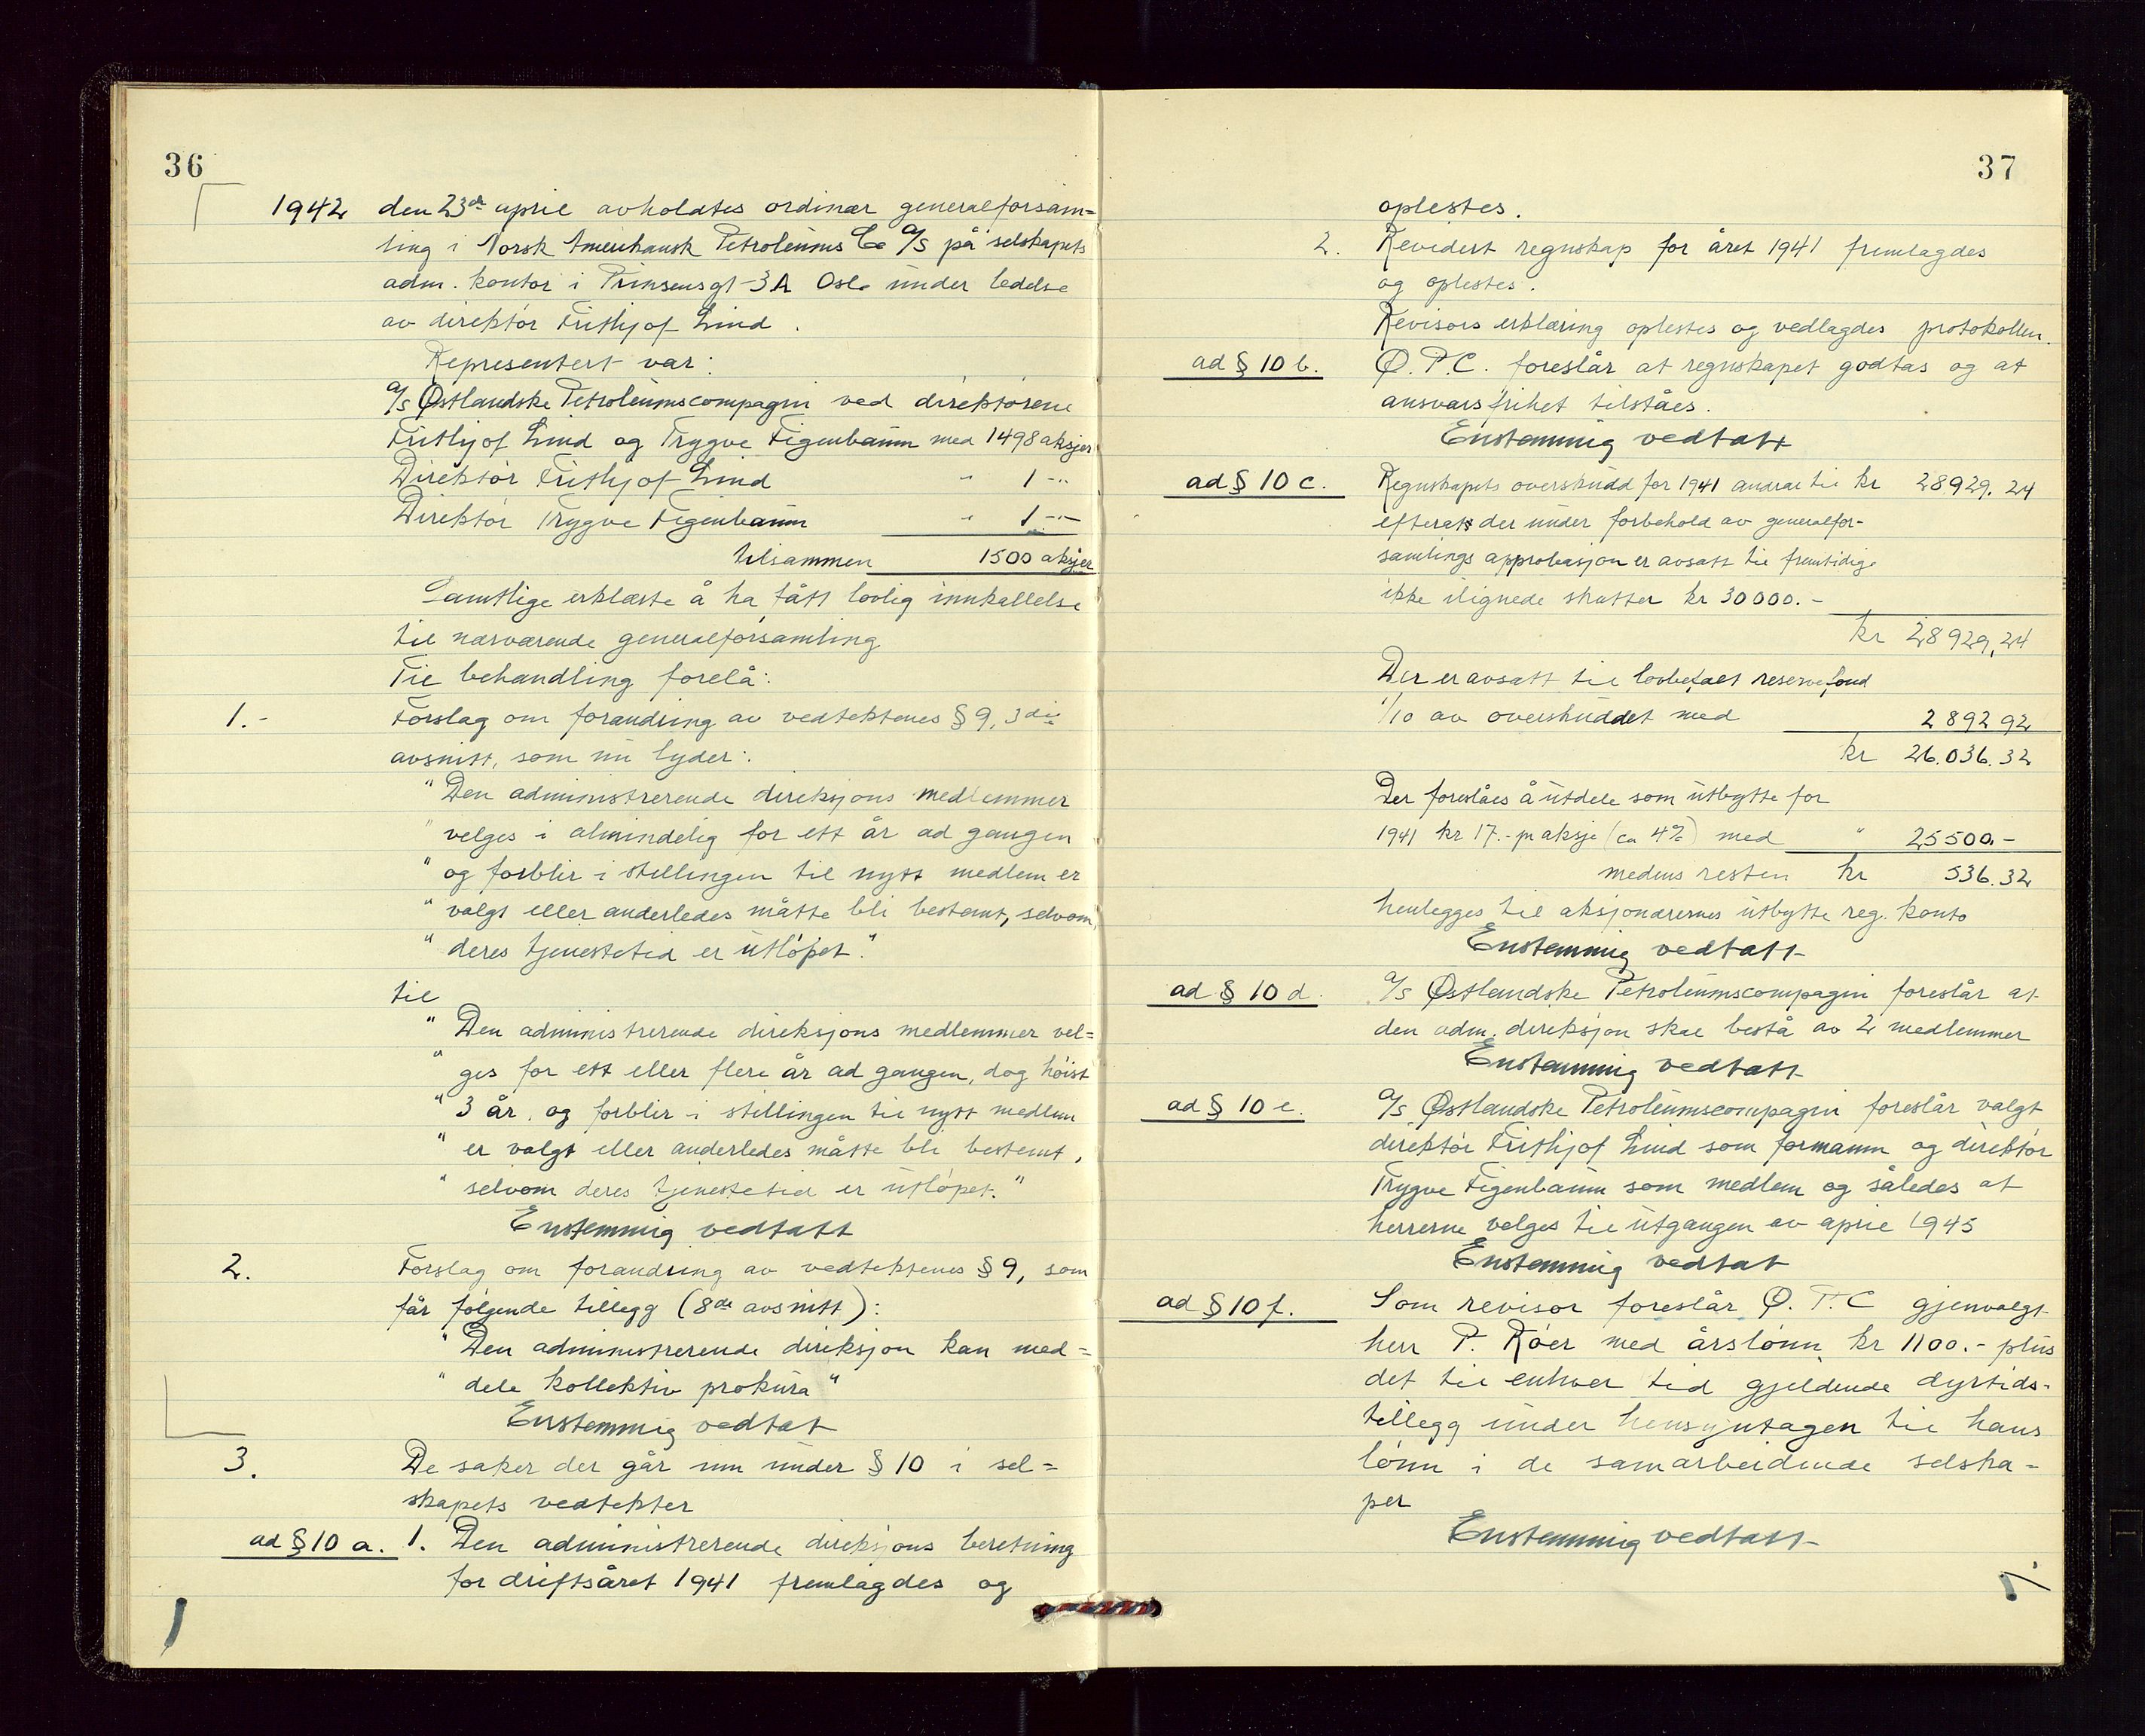 36
1942 den 23de april avholdtes ordinær generalforsam=
ling i Norsk Amerikansk Petroleums Co A/S på selskapets
adm. kontor i Prinsensgt 3A Oslo under ledelse
av direktør Frithjof Lind.
Representert var:
A/S Østlandske Petroleumscompagni ved direktørene
Frithjof Lind og Trygve Figenbaum med 1498 aksjer
Direktør Frithjof Lind " 1 -"-
Direktør Trygve Figenbaum " 1 -"-
tilsammen 1500 aksjer
Samtlige erklærte å ha fått lovlig innkallelse
til nærværende generalforsamling
Til behandling forelå:
1.- Forslag om forandring av vedtektenes § 9, 3die
avsnitt, som nu lyder:
" Den administrerende direksjons medlemmer
" velges i almindelig for ett år ad gangen
" og forblir i stillingen til nytt medlem er
" valgt eller anderledes måtte bli bestemt, selvom
" deres tjenestetid er utløpet."
til
" Den administrerende direksjons medlemmer vel=
" ges for ett eller flere år ad gangen, dog høist
" 3 år, og forblir i stillingen til nytt medlem
" er valgt eller anderledes måtte bli bestemt,
" selvom deres tjenestetid er utløpet."
Enstemmig vedtatt
2. Forslag om forandring av vedtektenes § 9, som
får følgende tillegg (8de avsnitt):
" Den administrerende direksjon kan med=
" dele kollektiv prokura "
Enstemmig vedtat
3. De saker der går inn under § 10 i sel=
skapets vedtekter
ad § 10 a. 1. Den administrerende direksjons beretning
for driftsåret 1941 fremlagdes og
37
oplestes.
2. Revidert regnskap for året 1941 fremlagdes
og oplestes.
Revisors erklæring oplestes og vedlagdes protokollen.
ad § 10 b. Ø.P.C. foreslår at regnskapet godtas og at
ansvarsfrihet tilståes.
Enstemmig vedtatt
ad § 10 c. Regnskapets overskudd for 1941 andrar til kr 28929.24
efterat der under forbehold av generalfor-
samlings approbasjon er avsatt til fremtidige
ikke ilignede skatter kr 30000.-
kr 28929,24
Der er avsatt til lovbefalt reservefond
1/10 av overskuddet med 2892 92
kr 26.036.32
Der foreslåes å utdele som utbytte for
1941 kr 17.- pr aksje (ca 4%) med " 25500.-
medens resten kr 536.32
henlegges til aksjonærernes utbytte reg. konto
Enstemmig vedtatt
ad § 10 d. A/S Østlandske Petroleumscompagni foreslår at
den adm. direksjon skal bestå av 2 medlemmer
Enstemmig vedtatt
ad § 10 e. A/S Østlandske Petroleumscompagni foreslår valgt
direktør Frithjof Lind som formann og direktør
Trygve Figenbaum som medlem og således at
herrerne velges til utgangen av april 1945
Enstemmig vedtat
ad § 10 f. Som revisor foreslår Ø.P.C gjenvalgt
herr P. Røer med årslønn kr 1100.- plus
det til enhver tid gjeldende dyrtids-
tillegg under hensyntagen til hans
lønn i de samarbeidende selska=
per
Enstemmig vedtatt